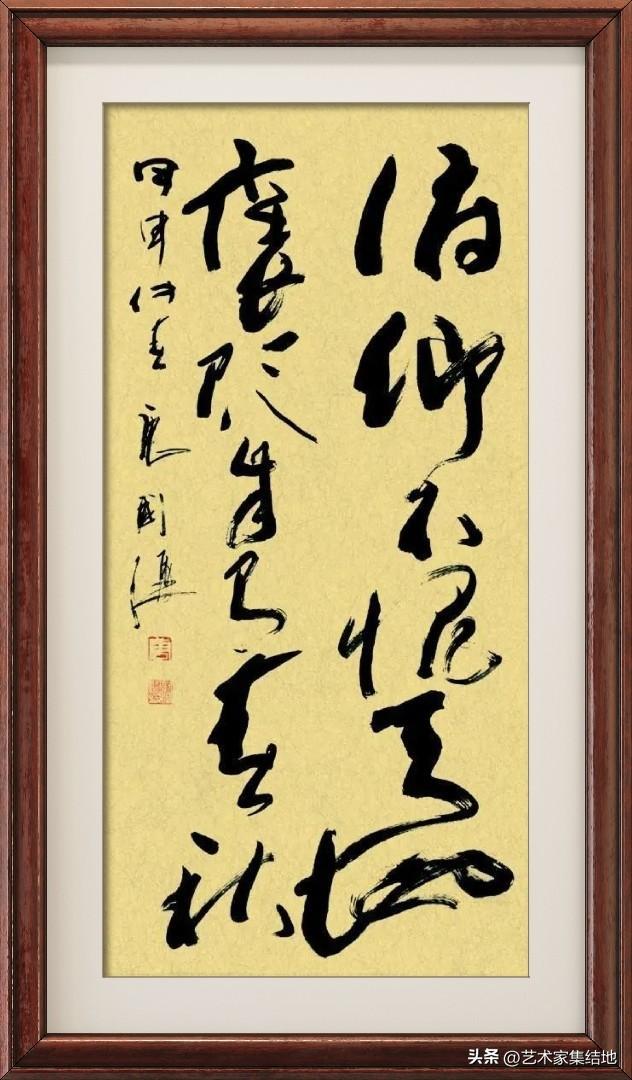 俯仰不愧天地
褒貶自有春秋
甲申仲春
头条 @艺术家集结地